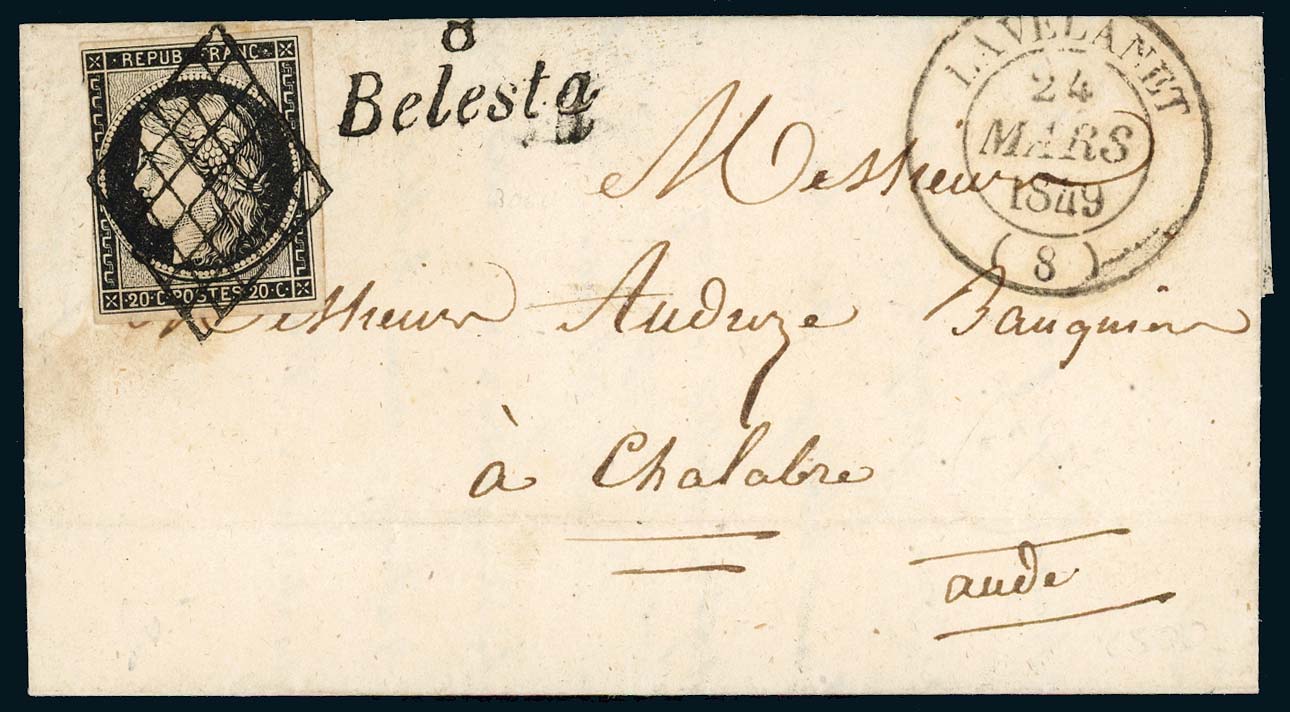 REPUB. FRANC.
20·C·POSTES·20·C·
8
Belesta
LAVELANET
24
MARS
1849
(8)
Messieur
Messieur Auduze Banquier
à Chalabre
aude